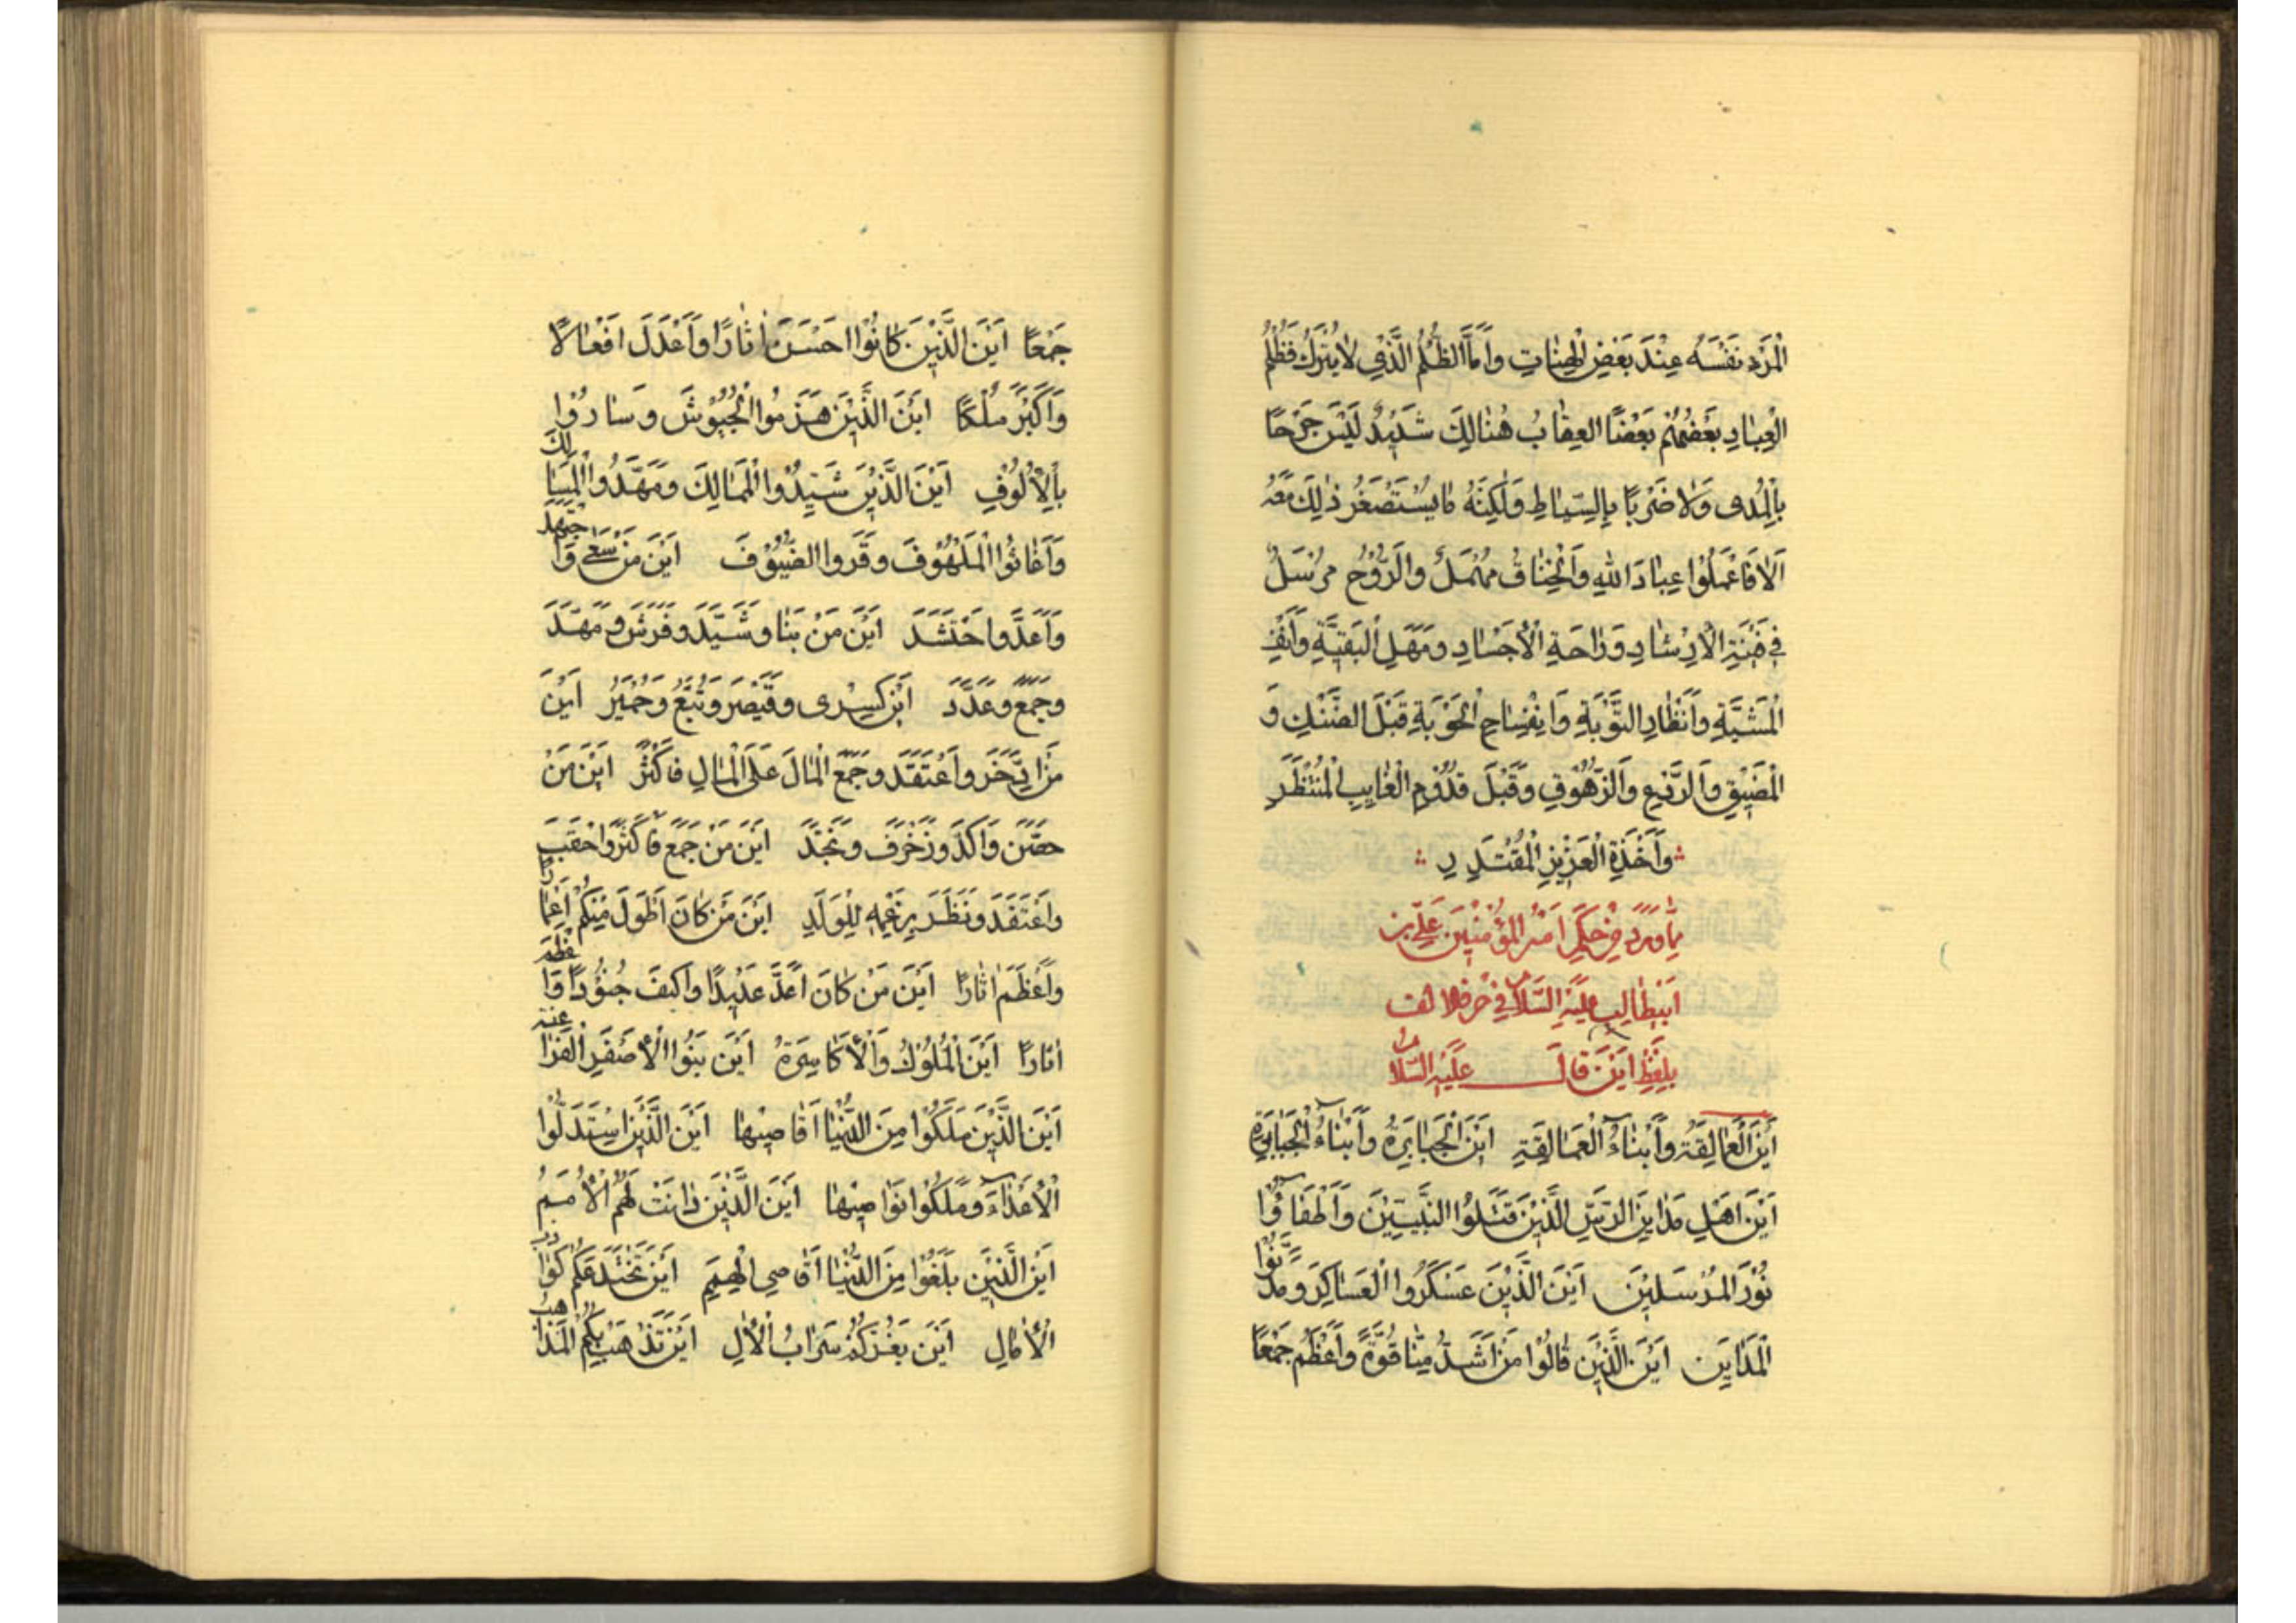 الْمَرْءِ نَفْسَهُ عِنْدَ بَعْضِ الْهَنَاتِ وَاَمَّا الظُّلْمُ الَّذِي لَا يُتْرَكُ فَظُلْمُ
الْعِبَادِ بَعْضُهُمْ بَعْضًا الْعِقَابُ هُنَالِكَ شَدِيْدٌ لَيْسَ جَرْحًا
بِالْمُدٰى وَلَا ضَرْبًا بِالسِّيَاطِ وَلٰكِنَّهُ مَا يُسْتَصْغَرُ ذٰلِكَ مَعَهُ
اَلَا فَاعْمَلُوْا عِبَادَ اللهِ وَالْخِنَاقُ مُهْمَلٌ وَالرُّوْحُ مُرْسَلٌ
فِي فَيْنَةِ الْاِرْشَادِ وَرَاحَةِ الْاَجْسَادِ وَمَهَلِ الْبَقِيَّةِ وَاُنُفِ
الْمَشِيَّةِ وَاِنْظَارِ التَّوْبَةِ وَانْفِسَاحِ الْحَوْبَةِ قَبْلَ الضَّنْكِ وَ
الْمَضِيْقِ وَالرَّوْعِ وَالزُّهُوْقِ وَقَبْلَ قُدُوْمِ الْغَايِبِ الْمُنْتَظَرِ
وَاَخْذَةِ الْعَزِيْزِ الْمُقْتَدِرِ
مِمَّا وَرَدَ مِنْ حِكَمِ اَمِيْرِ الْمُؤْمِنِيْنَ عَلِيِّ بْنِ
اَبِيْطَالِبٍ عَلَيْهِ السَّلَامُ فِي حَرْفِ الْاَلِفِ
بِلَفْظِ اَيْنَ قَالَ عَلَيْهِ السَّلَامُ
اَيْنَ الْعَمَالِقَةُ وَاَبْنَاءُ الْعَمَالِقَةِ اَيْنَ الْجَبَابِرَةُ وَاَبْنَاءُ الْجَبَابِرَةِ
اَيْنَ اَهْلُ مَدَايِنِ الرَّسِّ الَّذِيْنَ قَتَلُوا النَّبِيِّيْنَ وَاَطْفَاؤُا
نُوْرَ الْمُرْسَلِيْنَ اَيْنَ الَّذِيْنَ عَسْكَرُوا الْعَسَاكِرَ وَمَدَّنُوْا
الْمَدَايِنَ اَيْنَ الَّذِيْنَ قَالُوْا مَنْ اَشَدُّ مِنَّا قُوَّةً وَاَعْظَمُ جَمْعًا
جَمْعًا اَيْنَ الَّذِيْنَ كَانُوْا اَحْسَنَ اٰثَارًا وَاَعْدَلَ اَفْعَالًا
وَاَكْبَرَ مُلْكًا اَيْنَ الَّذِيْنَ هَزَمُوا الْجُيُوْشَ وَسَارُوْا
بِالْاُلُوْفِ اَيْنَ الَّذِيْنَ شَيَّدُوا الْمَمَالِكَ وَمَهَّدُوا الْمَسَالِكَ
وَاَغَاثُوا الْمَلْهُوْفَ وَقَرَوا الضُّيُوْفَ اَيْنَ مَنْ سَعٰى وَاجْتَهَدَ
وَاَعَدَّ وَاحْتَشَدَ اَيْنَ مَنْ بَنَا وَشَيَّدَ وَفَرَشَ وَمَهَّدَ
وَجَمَعَ وَعَدَّدَ اَيْنَ كِسْرٰى وَقَيْصَرُ وَتُبَّعُ وَحِمْيَرُ اَيْنَ
مَنِ ادَّخَرَ وَاعْتَقَدَ وَجَمَعَ الْمَالَ عَلَى الْمَالِ فَاَكْثَرَ اَيْنَ مَنْ
حَصَّنَ وَاَكَّدَ وَزَخْرَفَ وَنَجَّدَ اَيْنَ مَنْ جَمَعَ فَاَكْثَرَ وَاحْتَقَبَ
وَاعْتَقَدَ وَنَظَرَ بِزَعْمِهِ لِلْوَلَدِ اَيْنَ مَنْ كَانَ اَطْوَلَ مِنْكُمْ اَعْمَارًا
وَاَعْظَمَ اٰثَارًا اَيْنَ مَنْ كَانَ اَعَدَّ عَدِيْدًا وَاَكْنَفَ جُنُوْدًا وَاَعْظَمَ
اٰثَارًا اَيْنَ الْمُلُوْكُ وَالْاَكَاسِرَةُ اَيْنَ بَنُوا الْاَصْفَرِ الْفَرَاعِنَةُ
اَيْنَ الَّذِيْنَ مَلَكُوْا مِنَ الدُّنْيَا اَقَاصِيْهَا اَيْنَ الَّذِيْنَ اسْتَذَلُّوا
الْاَعْدَاءَ وَمَلَكُوْا نَوَاصِيْهَا اَيْنَ الَّذِيْنَ دَانَتْ لَهُمُ الْاُمَمُ
اَيْنَ الَّذِيْنَ بَلَغُوْا مِنَ الدُّنْيَا اَقَاصِي الْهِمَمِ اَيْنَ تَخْتَدِعُكُمْ كَوَاذِبُ
الْاٰمَالِ اَيْنَ يَغُرُّكُمْ سَرَابُ الْاٰلِ اَيْنَ تَذْهَبُ بِكُمُ الْمَذَاهِبُ